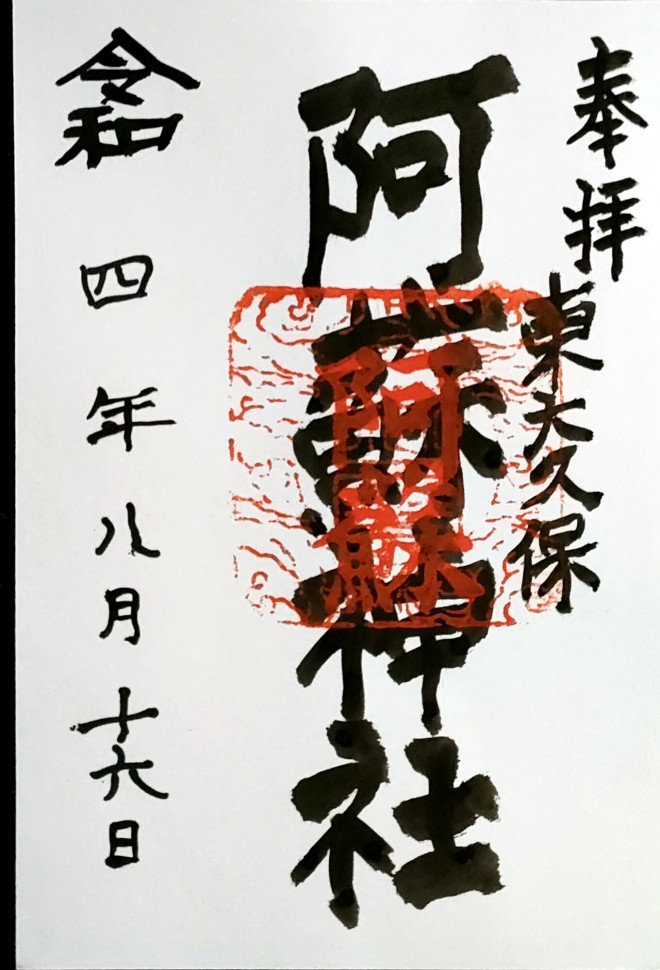 奉拝
東大久保
阿蘇神社
阿蘇
令和四年八月十六日